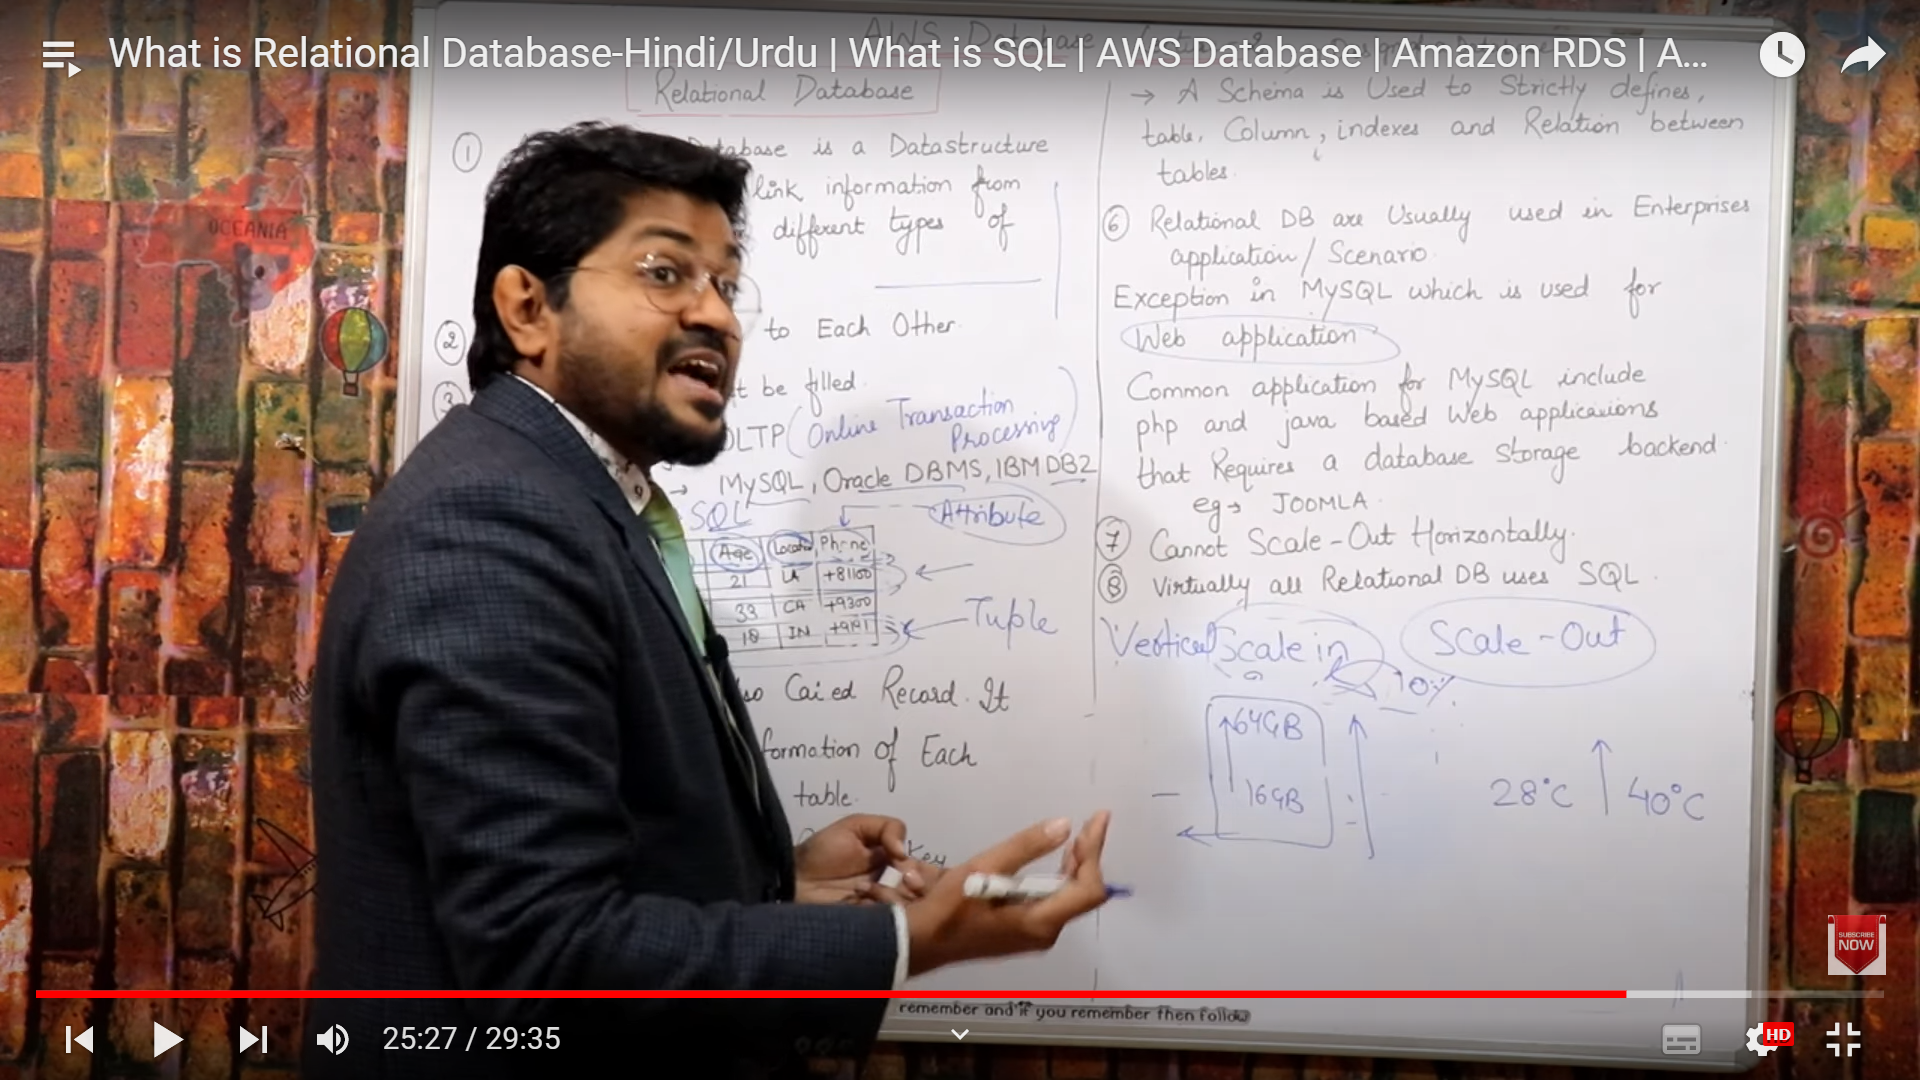 What is Relational Database-Hindi/Urdu | What is SQL | AWS Database | Amazon RDS | A...
AWS Database
Relational Database
①
Database is a Datastructure
link information from
different types of
② to Each Other
③ t be filled
OLTP (Online Transaction
Processing)
→ MySQL, Oracle DBMS, IBM DB2
SQL
Attribute
Age Locatio Phone
21 LA +81100
33 CA +9300
18 IN +9191
Tuple
so Called Record. It
formation of Each
table.
Key
→ A Schema is Used to Strictly defines,
table, Column, indexes and Relation between
tables.
⑥ Relational DB are Usually used in Enterprises
application/Scenario.
Exception in MySQL which is used for
Web application
Common application for MySQL include
php and java based Web applications
that Requires a database Storage backend.
eg→ JOOMLA.
⑦ Cannot Scale-Out Horizontally.
⑧ Virtually all Relational DB uses SQL.
Vertical Scale in Scale-Out
10%
64GB
16GB
28°C ↑ 40°C
OCEANIA
SUBSCRIBE
NOW
remember and if you remember then follow
25:27 / 29:35
HD